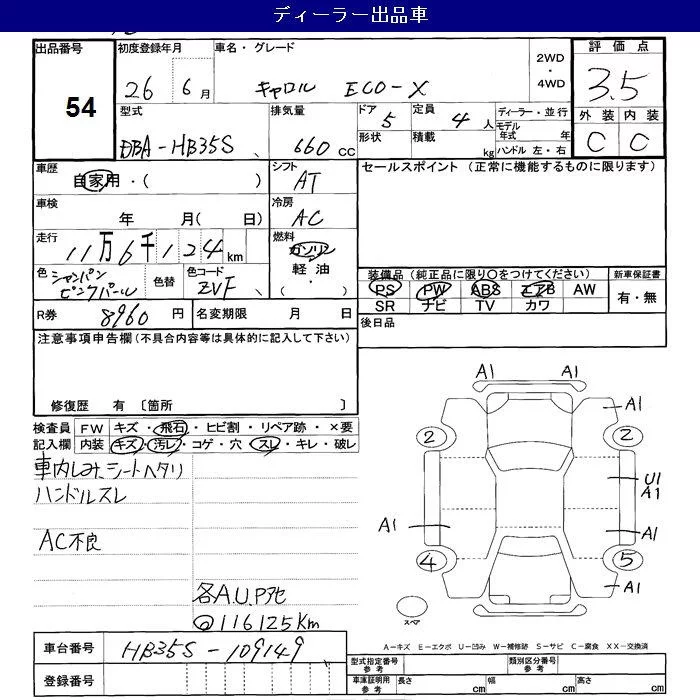 ディーラー出品車
出品番号
54
初度登録年月
26年 6月
車名・グレード
キャロル ECO-X
2WD
・
4WD
評価点
3.5
型式
DBA-HB35S
排気量
660 cc
ドア
5
定員
4 人
形状
積載
kg
ディーラー・並行
モデル年式 年
ハンドル 左・右
外装 内装
C C
車歴
自家用・( )
シフト
AT
セールスポイント (正常に機能するものに限ります)
車検
年 月( 日)
冷房
AC
走行
11万6千124km
燃料
ガソリン
軽油
( ・ )
色
シャンパン
ピンクパール
色替
色コード
ZVF
装備品(純正品に限り○をつけてください)
新車保証書
PS PW ABS エアB AW
SR ナビ TV カワ
有・無
R券 8960 円
名変期限 月 日
後日品
注意事項申告欄(不具合内容等は具体的に記入して下さい)
修復歴 有 〔箇所 〕
検査員
記入欄
FW キズ・飛石・ヒビ割・リペア跡・×要
内装 キズ・汚レ・コゲ・穴・スレ・キレ・破レ
車内しみ、シートヘタリ
ハンドルスレ
AC不良
各A.U.P
116125Km
A1 A1
A1
2 2
U1
A1
A1 A1
4 5
A1
スペア
A-キズ E-エクボ U-凹み W-補修跡 S-サビ C-腐食 XX-交換済
車台番号
HB35S-109149
登録番号
型式指定番号
参考
類別区分番号
参考
車庫証明用
参考
長さ cm 幅 cm 高さ cm